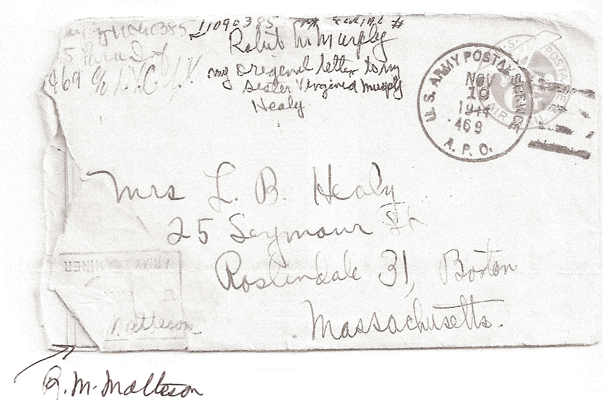 11040385
11090385 my serial #
Robert M Murphy
my oreginal letter to my
sister Vergenia Murphy
Healy
469 % N.Y.C N.Y.
U.S. ARMY POSTAL SERVICE
NOV
19
1944
469
A. P. O.
AIR MAIL
Mrs L. B. Healy
25 Seymour St
Roslindale 31, Boston
Massachusetts.
ARMY EXAMINER
Matteson
R. M. Matteson